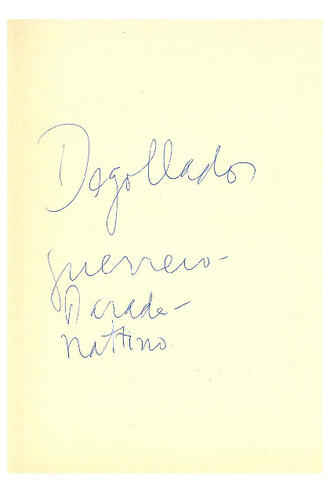 Degollados
guerrero-
Parada-
Nattino